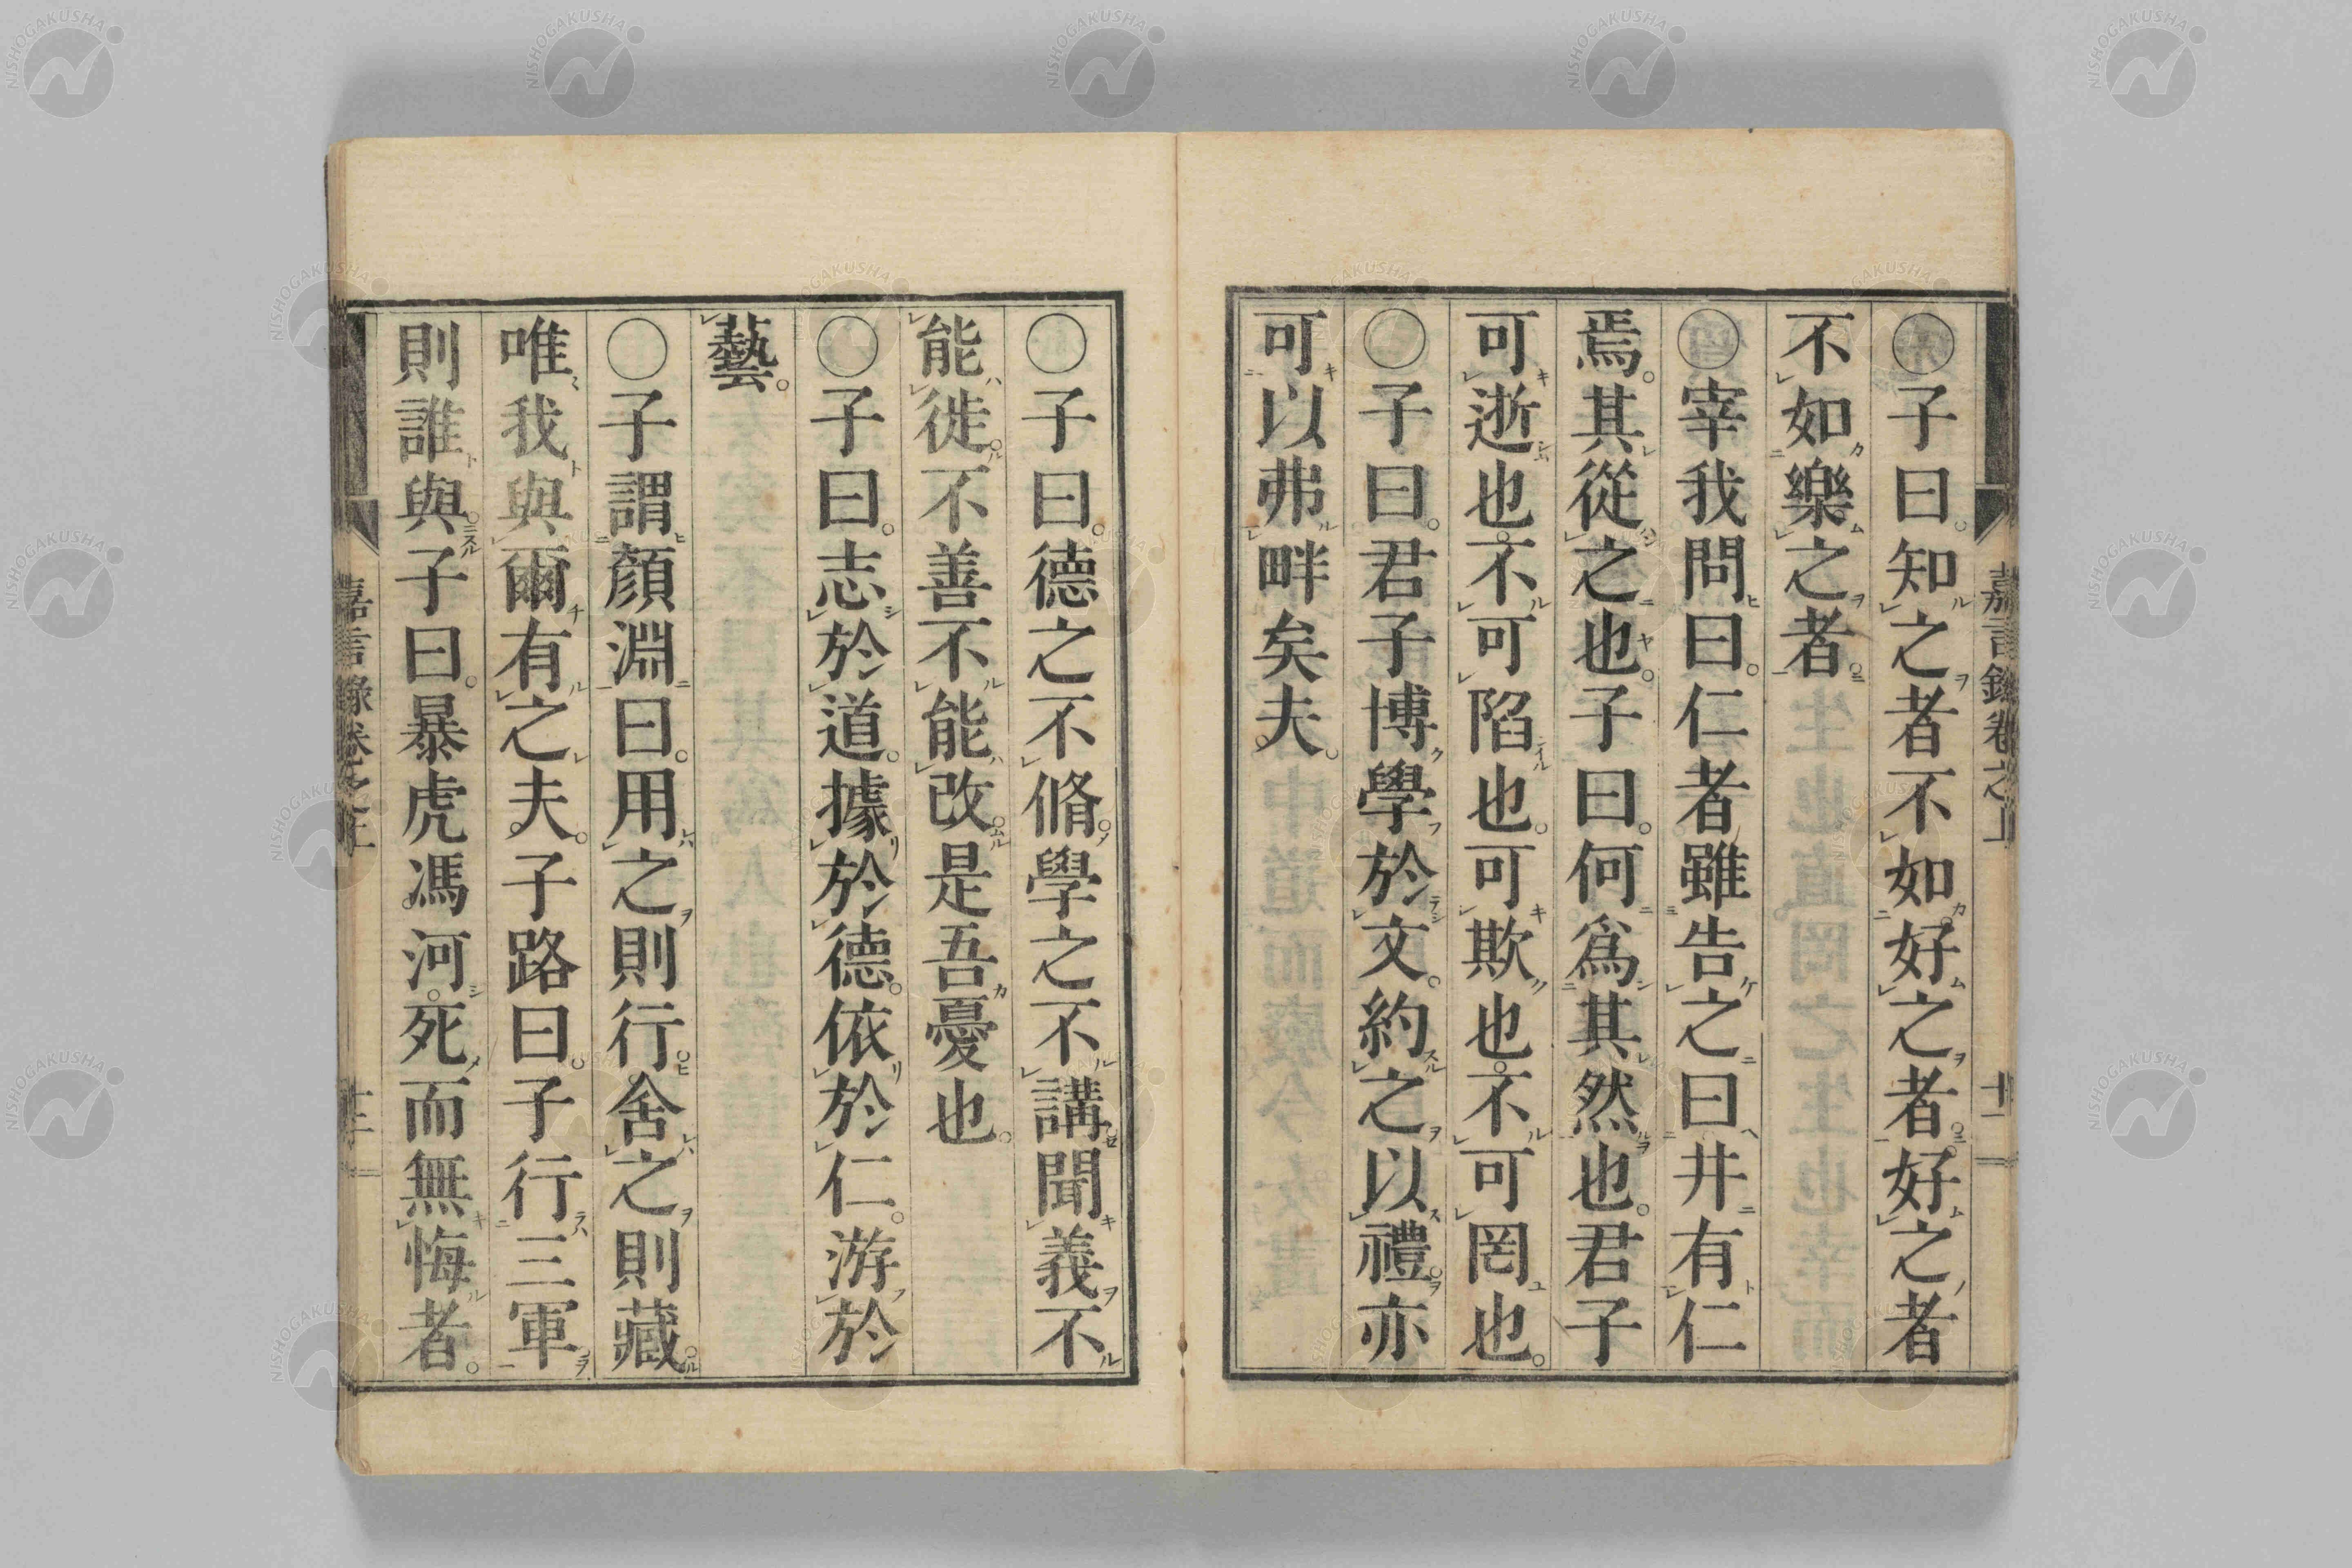 〇子曰。知之者不如好之者。好之者
不如樂之者。
〇宰我問曰。仁者雖告之曰井有仁
焉。其從之也。子曰。何爲其然也。君子
可逝也。不可陷也。可欺也。不可罔也。
〇子曰。君子博學於文。約之以禮。亦
可以弗畔矣夫。
〇子曰。德之不脩。學之不講。聞義不
能徙。不善不能改。是吾憂也。
〇子曰。志於道。據於德。依於仁。游於
藝。
〇子謂顏淵曰。用之則行。舍之則藏。
唯我與爾有之夫。子路曰。子行三軍
則誰與。子曰。暴虎馮河。死而無悔者。
嘉言錄卷之上
十一
NISHOGAKUSHA